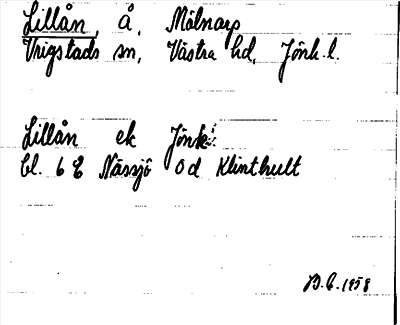 Lillån, å, Mölnarp
Vrigstads sn, Västra hd, Jönk.l.
Lillån ek Jönk.
bl. 6 E Nässjö 0d Klinthult
1958